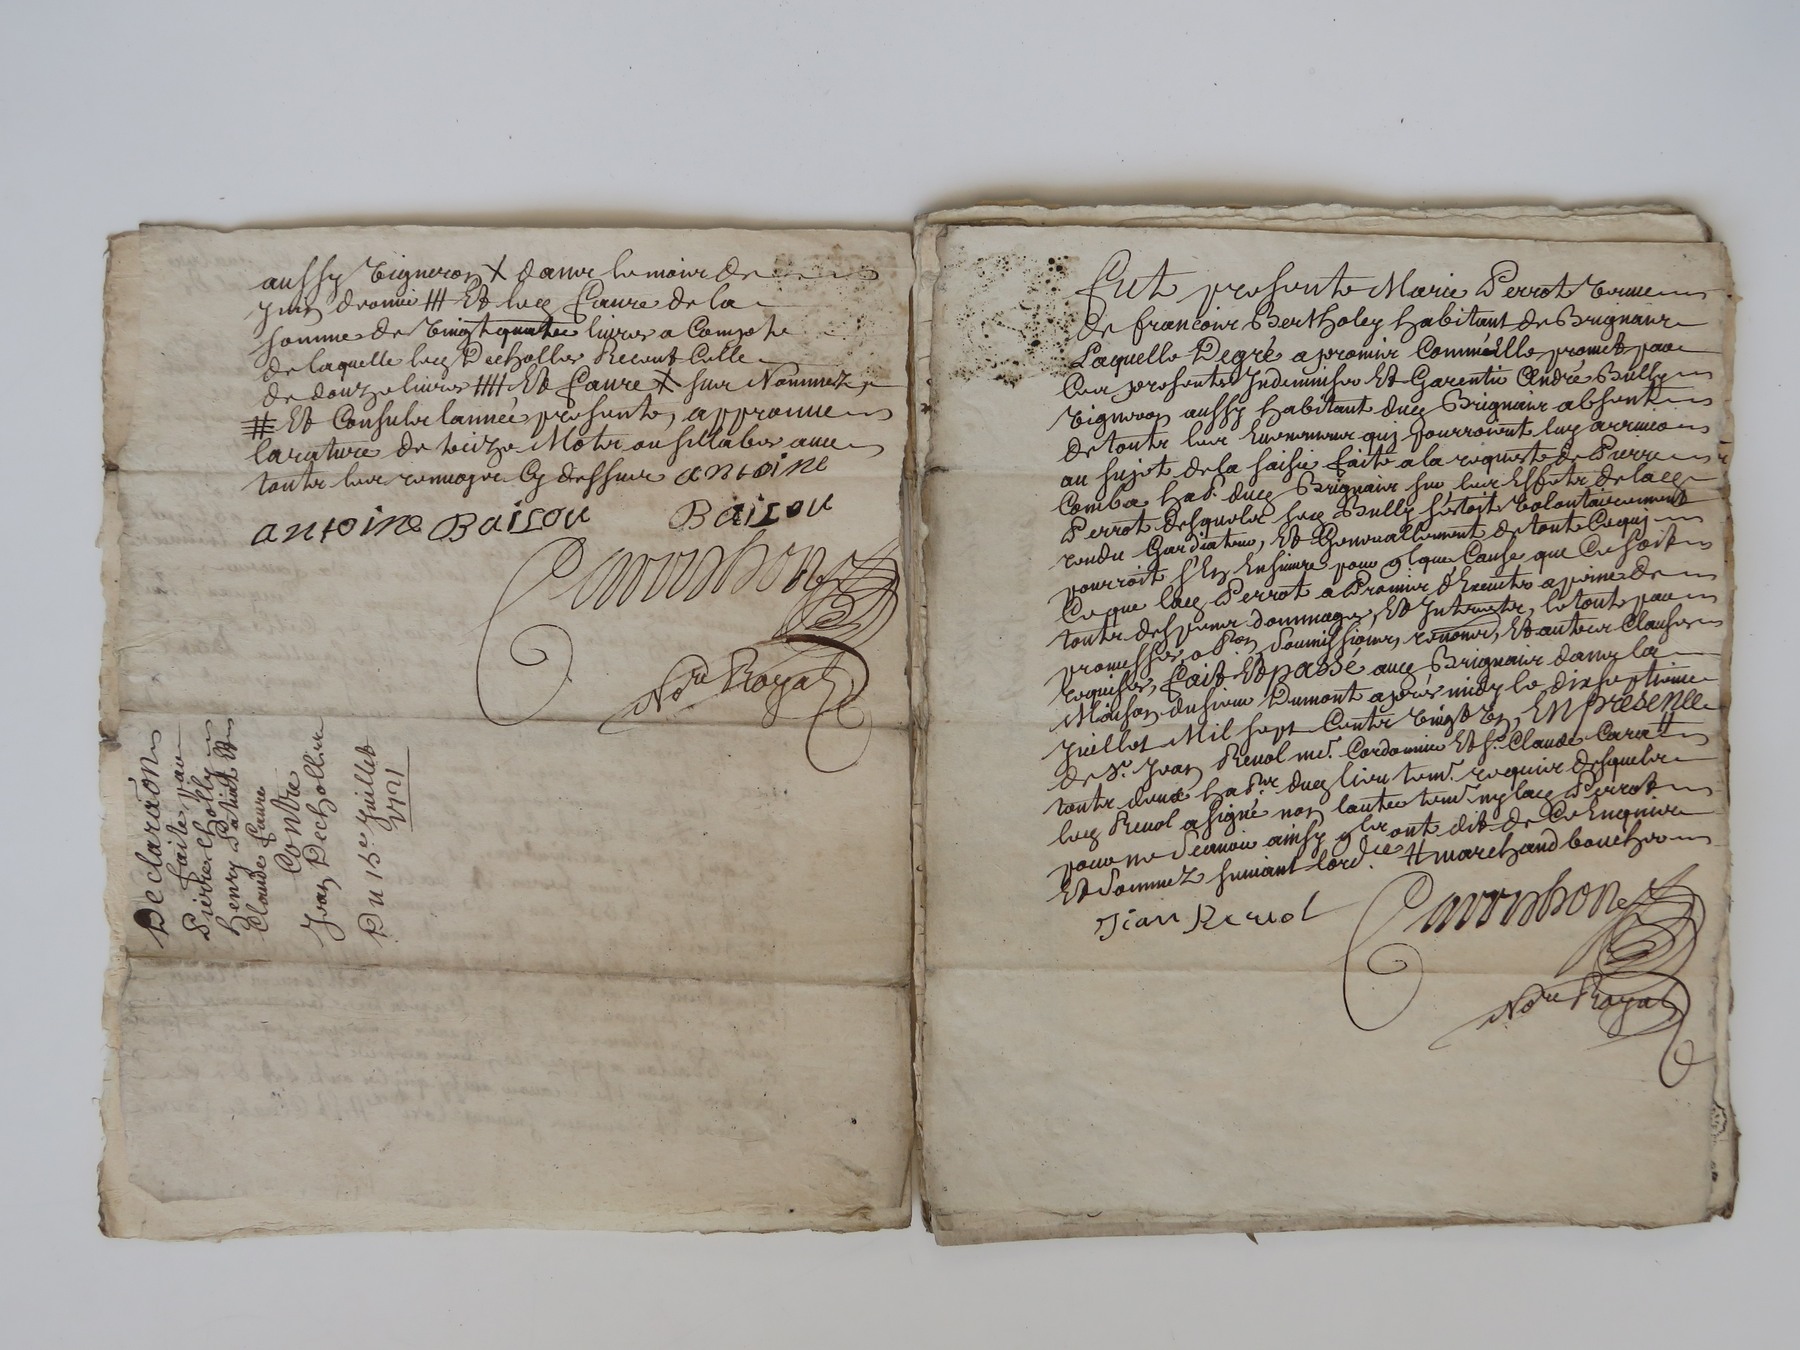 aussy Vigneron X dans le mois de
Juin dernier ||| Et lecq Faure de la
somme de Vingt quatre livres a Compte
de laquelle lecq Decholler Receut Celle
de douze livres |||| Et Faure X sur Nommez,
# Et Consuls lannée presente, approuue
la rature de treize Mots ou sillabes auec
touts les renuoyes Cy dessus antoine
antoine Baizou Baizou
Cavorshon
No.re Royal
Declara͠on
faite par
Pierre Cholly
henry Patiut Et
Claude Faure
Contre
Jean Dechollier
Du 15.e Juillet
1721
Fut presente Marie Perrot Veuue
de francois Bertholey habitant de Brignais
Laquelle De gré a promis Comm'elle promet par
Ces presentes Indemniser Et Garentir André Bully
Vigneron aussy habitant ducq Brignais absent
de touts les Euenemens quj pourroient luy arriuer
au sujet de la saisie faite a la requeste de Pierre
Comba hab.t ducq Brignais sur les Effets de lacq
Perrot desquels lecq Bully s'estoit Volontairement
rendu Gardiateur, Et Generallement de tout Cequj
pourroit s'En Ensuiure pour q̃lque Cause que Ce soit
Ce que lacq Perrot a Promis d'Executer a peine de
touts despens dommages, Et Interests, le tout par
promesses, o͠b͠on, soumissions, renoncés, Et autres Clauses
requises, fait Et passé aucq Brignais dans la
Maison du sieur Dumont apres midy le dixseptieme
Juillet Mil sept Cents Vingt Un, En presence
de S.r Jean Reuol m.e Cordonnier Et S.r Claude Carat #
touts deux hab.ts ducq lieu tem.s requis desquels
lecq Reuol a signé non lautre tem. ny lacq Perrot
pour ne sçauoir ainsy q̃ls ont dit de Ce Enquis
Et sommez suiuant lord.ce # marchand boucher
Jean Reuol
Cavorshon
No.re Royal